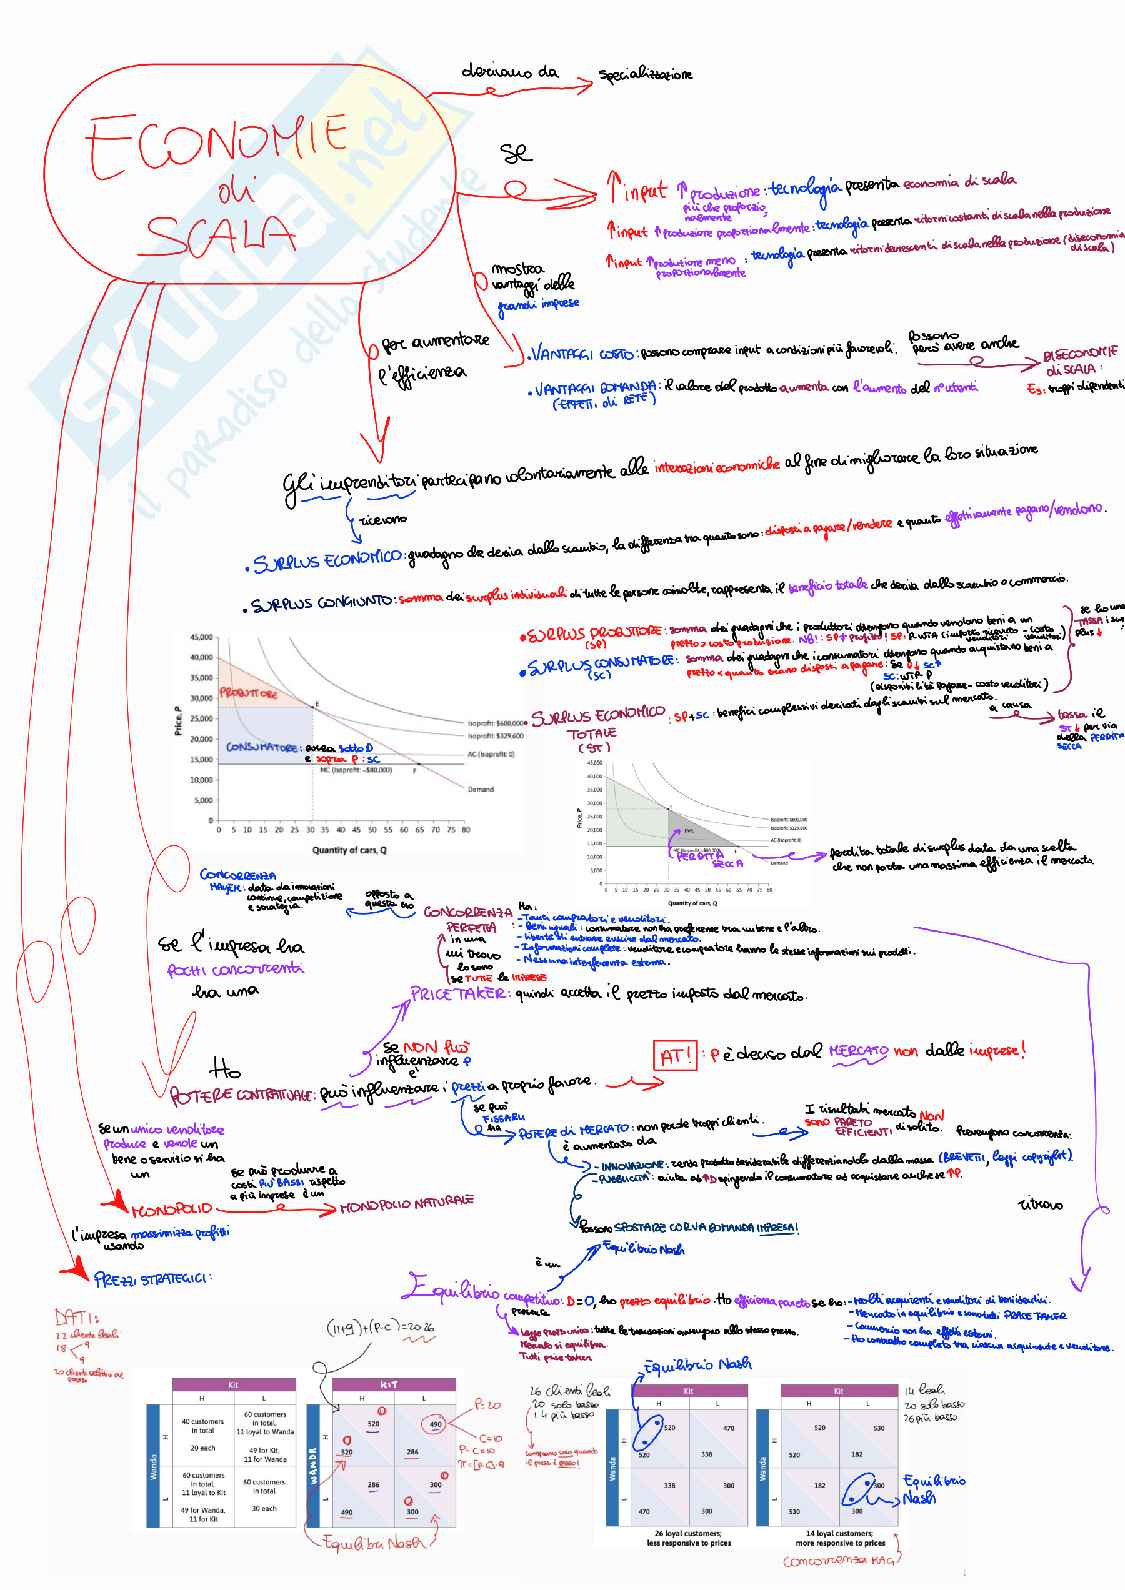 derivano da
specializzazione
ECONOMIE
di
SCALA
se
↑input ↑produzione: tecnologia presenta economia di scala
più che proporzio-
nalmente
↑input ↑produzione proporzionalmente: tecnologia presenta ritorni costanti di scala nella produzione
↑input ↑produzione meno : tecnologia presenta ritorni decrescenti di scala nella produzione (diseconomia
proporzionalmente
di scala)
mostra
vantaggi delle
grandi imprese
per aumentare
l'efficienza
• VANTAGGI COSTO: possono comprare input a condizioni più favorevoli.
possono
però avere anche
DISECONOMIE
di SCALA:
Es: troppi dipendenti
• VANTAGGI DOMANDA: il valore del prodotto aumenta con l'aumento del n° utenti
(EFFETTI di RETE)
skuola.net
il paradiso dello studente
Gli imprenditori partecipano volontariamente alle interazioni economiche al fine di migliorare la loro situazione
ricevono
• SURPLUS ECONOMICO: guadagno che deriva dallo scambio, la differenza tra quanto sono disposti a pagare/vendere e quanto effettivamente pagano/vendono.
• SURPLUS CONGIUNTO: somma dei surplus individuali di tutte le persone coinvolte, rappresenta il beneficio totale che deriva dallo scambio o commercio.
• SURPLUS PRODUTTORE: somma dei guadagni che i produttori ottengono quando vendono beni a un
(SP)
prezzo > costo produzione.
• SURPLUS CONSUMATORE: somma dei guadagni che i consumatori ottengono quando acquistano beni a
(SC)
prezzo < quanto erano disposti a pagare: se P↓ SC↑
SC: WTP-P
(disponibilità pagare - costo venditori)
se ho una
TASSA i sur
plus ↓
• SURPLUS ECONOMICO: SP+SC: benefici complessivi derivati dagli scambi sul mercato.
TOTALE
(ST)
a causa
tassa il
ST ↓ per via
della PERDITA
SECCA
Price, P
45,000
40,000
35,000
30,000
25,000
20,000
15,000
10,000
5,000
0
0 5 10 15 20 25 30 35 40 45 50 55 60 65 70 75 80
Quantity of cars, Q
PRODUTTORE
CONSUMATORE: possa sotto D
e sopra P: SC
E
F
Isoprofit: $600,000
Isoprofit: $329,600
AC (Isoprofit: 0)
MC (Isoprofit: -$80,000)
Demand
Price, P
45,000
40,000
35,000
30,000
25,000
20,000
15,000
10,000
5,000
0
0 5 10 15 20 25 30 35 40 45 50 55 60 65 70 75 80
Quantity of cars, Q
Demand
PERDITA
SECCA
perdita totale di surplus data da una scelta
che non porta una massima efficienza il mercato.
CONCORRENZA
HAYEK: data da innovazioni
continue, competizione
e strategia
opposto a
questa era
CONCORRENZA
PERFETTA
in una
mi trovo
lo sono
se TUTTE le IMPRESE
Ha:
- Tanti compratori e venditori.
- Beni uguali: consumatore non ha preferenze tra un bene e l'altro.
- Libertà di entrare e uscire dal mercato.
- Informazioni complete: venditore e compratore hanno le stesse informazioni sui prodotti.
- Nessuna interferenza esterna.
Se l'impresa ha
pochi concorrenti
ha una
PRICE TAKER: quindi accetta il prezzo imposto dal mercato.
Se NON può
influenzare P
è
AT!: P è deciso dal MERCATO non dalle imprese!
Ho
POTERE CONTRATTUALE: può influenzare i prezzi a proprio favore.
se può
FISSARLI
ha
POTERE di MERCATO: non perde troppi clienti.
è aumentato da
I risultati mercato NON
sono PARETO
EFFICIENTI di solito.
Prevengono concorrenza:
- INNOVAZIONE: rende prodotto desiderabile differenziandolo dalla massa (BREVETTI, leggi copyright)
- PUBBLICITÀ: aiuta ad ↑D spingendo il consumatore ad acquistare anche se ↑P.
Possono SPOSTARE CURVA DOMANDA IMPRESA!
Se un unico venditore
produce e vende un
bene o servizio si ha
un
MONOPOLIO
se può produrre a
costi PIÙ BASSI rispetto
a più imprese è un
MONOPOLIO NATURALE
ritrovo
l'impresa massimizza profitti
usando
PREZZI STRATEGICI:
Equilibrio Nash
è un
Equilibrio competitivo: D=O, ho prezzo equilibrio. Ho efficienza pareto se ho:
- Molti acquirenti e venditori di beni identici.
- Mercato in equilibrio e sono tutti PRICE TAKER
- Commercio non ha effetti esterni.
- Ho contratto completo tra ciascun acquirente e venditore.
presenta
Legge prezzo unico: tutte le transazioni avvengono allo stesso prezzo.
Mercato si equilibra
Tutti price taker
DATI:
22 clienti leali
18
9
9
(11+9)+(P-C)=20·26
Kit
H
L
Wanda
H
L
40 customers
in total
20 each
60 customers
in total,
11 loyal to Wanda
49 for Kit,
11 for Wanda
60 customers
in total,
11 loyal to Kit
49 for Wanda,
11 for Kit
60 customers
in total,
30 each
KIT
H
L
WANDA
H
L
520
320
490
286
286
490
300
300
P=20
C=10
P-C=10
Equilibri Nash
26 clienti leali
20 solo basso
14 più basso
comprano solo quando
il prezzo è basso!
Equilibrio Nash
Kit
H
L
Wanda
H
L
520
520
470
338
338
470
300
300
26 loyal customers;
less responsive to prices
Kit
H
L
Wanda
H
L
520
520
530
182
182
530
300
300
14 loyal customers;
more responsive to prices
14 leali
20 solo basso
26 più basso
Equilibrio
Nash